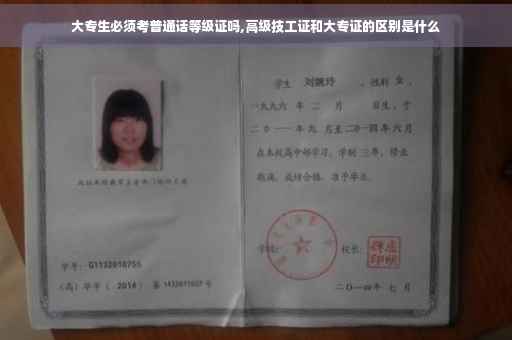 大专生必须考普通话等级证吗,高级技工证和大专证的区别是什么
学生 刘婉玲 ，性别 女 ，
一九九六 年 二 月 日生，于
二0一一 年 九 月至 二0一四 年 六 月
在本校高中部学习，学制 三年，修业
期满，成绩合格，准予毕业。
学号：G1132010755
(高) 毕字 ( 2014 ) 第 1432011027 号
学校： 校长：
二〇一四年 七 月